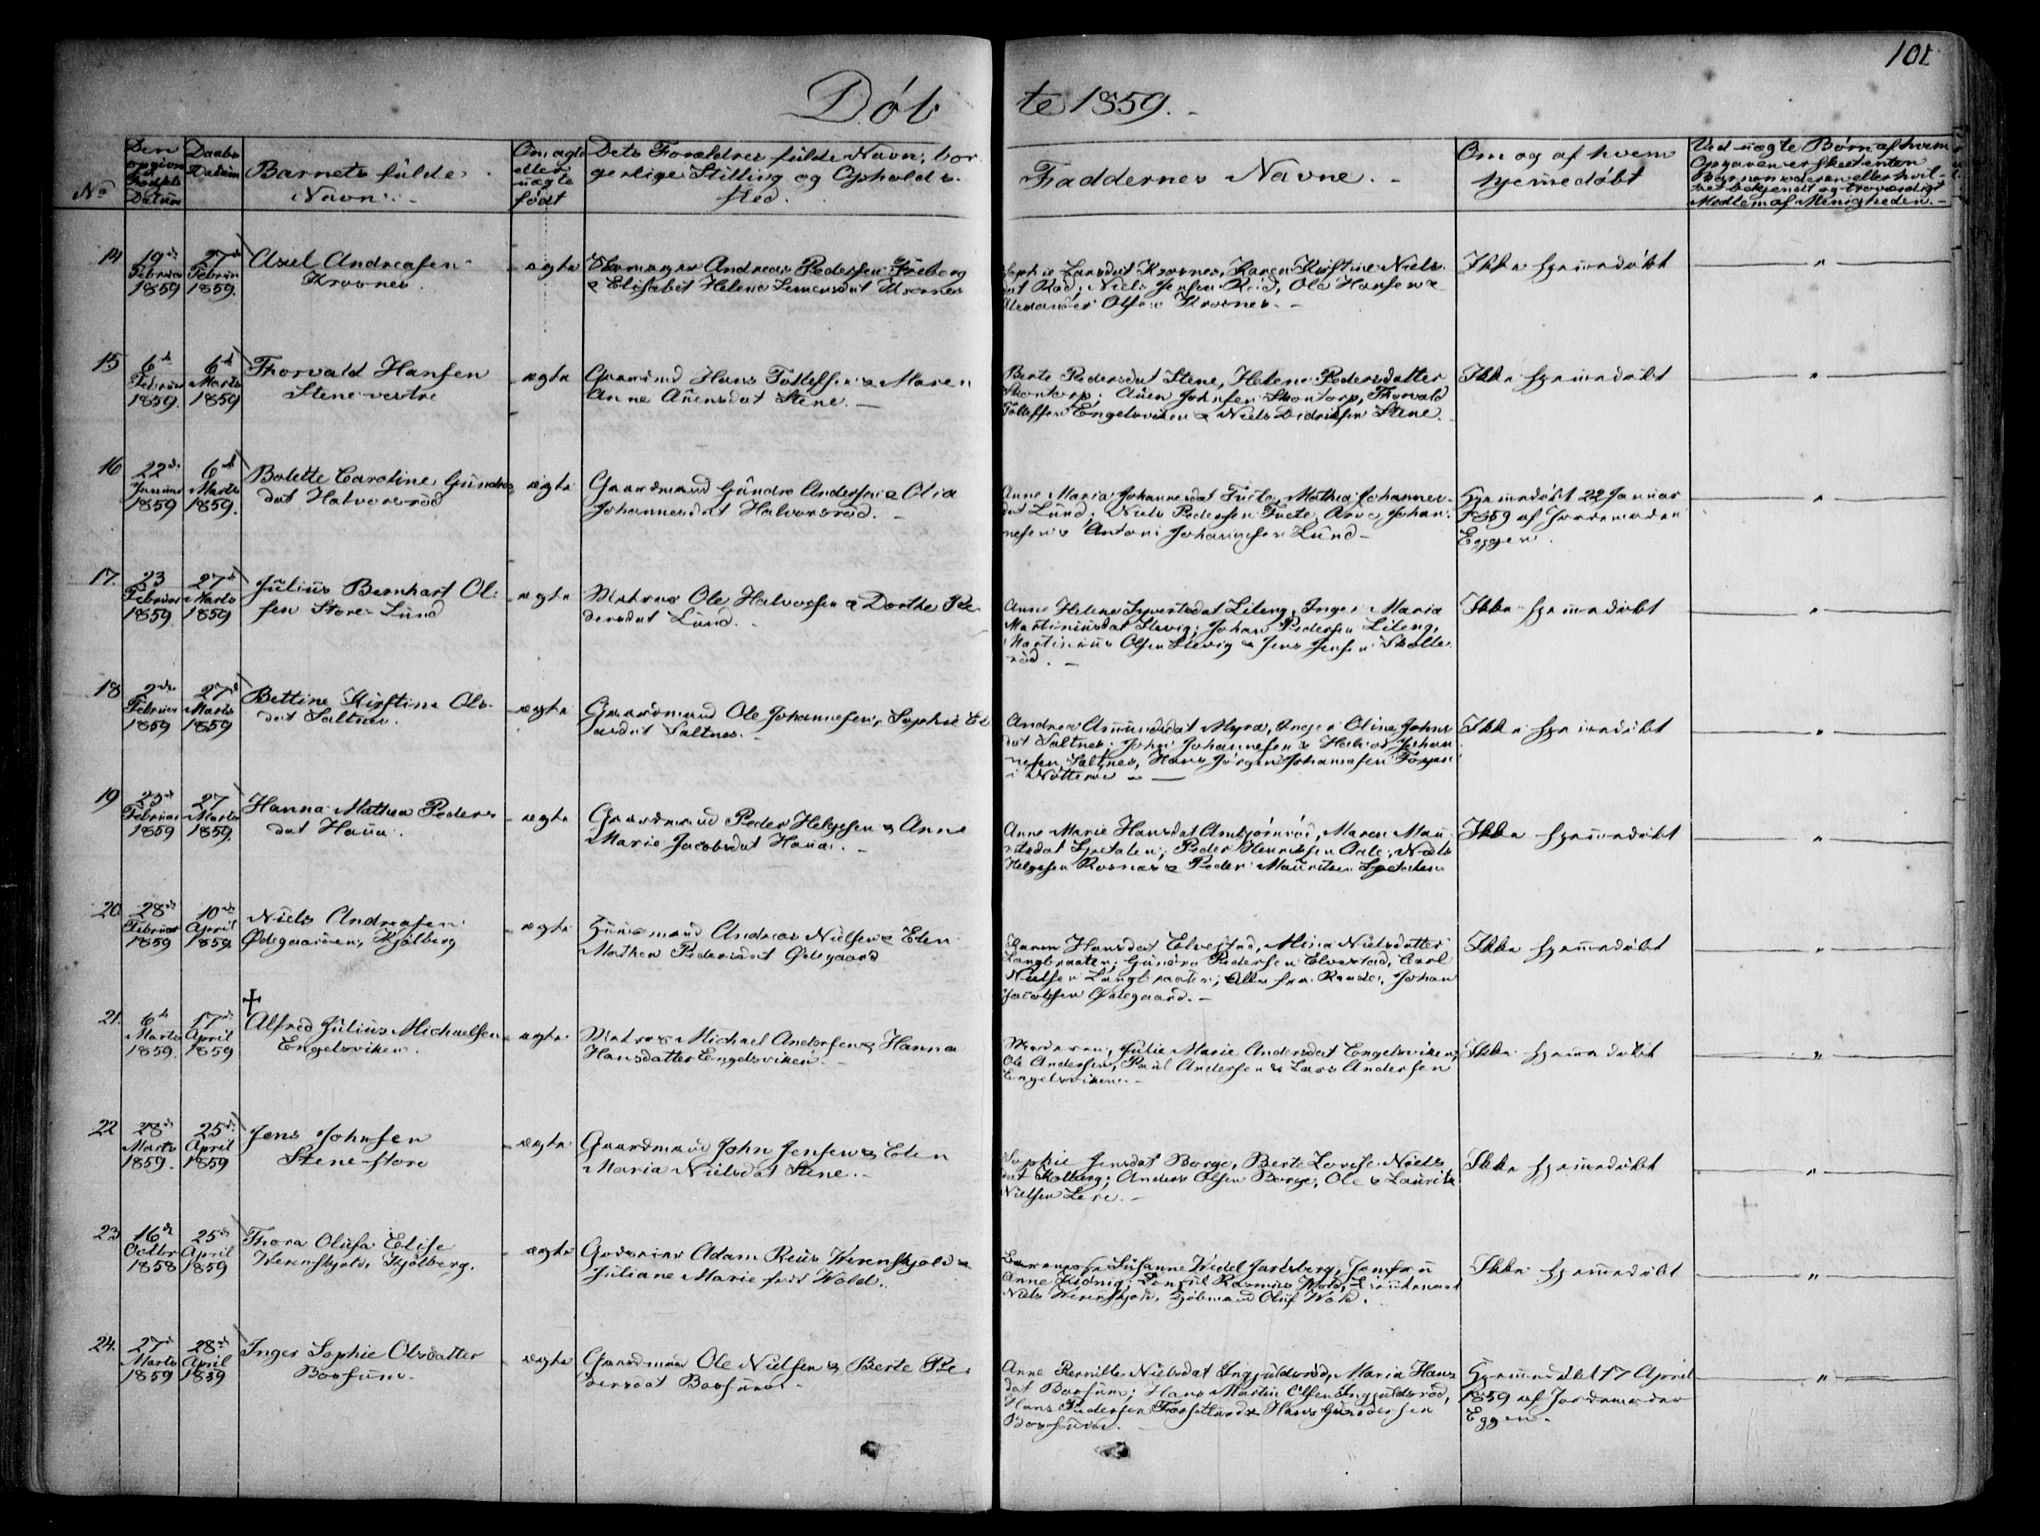 101
Døb te 1859.
No
Den
opgivne
Fødsels
Datum
Daabs
Datum
Barnets fulde
Navn.
Om ægte
eller
uægte
født
Dets Forældres fulde Navn, bor-
gerlige Stilling og Opholds-
sted.
Faddernes Navne.
Om og af hvem
hjemmedøbt
Ved uægte Børn af hvem
Opgaven er skeet enten
Barnemoderen eller hvil-
ket bekjendt og troværdigt
Medlem af Menigheden.
14
19de
Februar
1859
27de
Februar
1859.
Axel Andreasen
Kraanes
ægte
Andreas Pedersen
& Elisabet Helene
Sophie Larsdat Karen Kirstine Niels-
dat Rød, Niels Jensen Rød, Ole Hansen &
Alexander Olsen
Ikke hjemmedøbt
"
15
6te
Februar
1859.
6te
Marts
1859
Thorvald Hansen
Stene vestre
ægte
Gaardmd Hans Tollefsen & Maren
Anne Auensdat Stene.
Berte Pedersdat Stene, Helene Pedersdatter
Skontorp; Auen Johnsen Skontorp, Thorvald
Tollefsen Engelsviken & Niels Didriksen Stene.
Ikke hjemmedøbt
"
16
22de
Januar
1859
6te
Marts
1859.
Bolette Caroline Gundro
dat Halvorsrød
ægte
Gaardmand Gundro Andersen & Olia
Johannesdat Halvorsrød.
Anne Maria Johannesdat Tuete, Mathea Johannes-
dat Lund, Niels Pedersen Tuete, Arve Johan-
nesen & Antoni Johannesen Lund
Hjemmedøbt 22 Januar
1859 af Jordemoder
Eggen.
"
17.
23
Februar
1859.
27de
Marts
1859
Julius Bernhart Ol-
sen Store-Lund
ægte
Matros Ole Halvorsen & Dorthe Pe-
dersdat Lund.
Anne Helene Syvertsdat Lileng, Inger Maria
Martiniusdat Slevig; Johan Pedersen Lileng,
Martinius Olsen Slevig & Jens Jensen Skolle-
rød.
Ikke hjemmedøbt
"
18
2den
Februar
1859
27de
Marts
1859
Bettine Kirstine Ols-
dat Saltnes.
ægte
Gaardmand Ole Johannesen, Sophie
Saltnes.
Andrea Amundsdat Myra, Inger Oline Johns-
dat Saltnes; John Johannesen & Johan-
nesen Saltnes, Hans Jørgen Johannesen
i Nøtterøe
Ikke hjemmedøbt
"
19
25de
Februar
1859
27
Marts
1859.
Hanna Mathea Peders
dat Haua.
ægte
Gaardmand Peder Helgesen & Anne
Marie Jacobsdat Haua.
Anne Marie Hansdat Ambjørnrød, Maren Mau-
ritsdat Spetalen; Peder Henriksen Aale, Niels
Helgesen Rosnæs & Peder Mauritsen Spetalen
Ikke hjemmedøbt
"
20
28de
Februar
1859
10de
April
1859
Niels Andreasen
Ødegaarden, Kjølberg
ægte
Huusmand Andreas Nielsen & Elen
Mathea Pedersdat Ødegaard
Karen Hansdat Elvestad, Mina Nielsdatter
Langbraaten; Gundro Pedersen Elvestad, Carl
Nielsen Langbraaten, alle fra Raade, Johan
Jacobsen Ødegaard.
Ikke hjemmedøbt
"
21.
6te
Marts
1859.
17de
April
1859
†
Alfred Julius Michaelsen
Engelsviken.
ægte
Matros Michael Andersen & Hanna
Hansdatter Engelsviken.
Moderen, Julie Marie Andersdat Engelsviken,
Ole Andersen, Paul Andersen & Lars Andersen
Engelsviken.
Ikke hjemmedøbt
"
22
28de
Marts
1859.
25de
April
1859
Jens Johnsen
Stene-store
ægte
Gaardmand John Jensen & Elen
Maria Nielsdat Stene.
Sophie Jensdat Borge, Berte Lovise Niels-
dat Kolberg; Anders Olsen Borge, Ole & Laurits
Nielsen Lere.
Ikke hjemmedøbt
"
23
16de
Octbr
1858
25de
April
1859
Thora Olufa Elise
Werenskjold, Kjølberg.
ægte
Godseier Adam Reus Werenskjold &
Juliane Marie født Wold.
Baronesse Susanne Wedel Jarlsberg, Jomfru
Anne Kiønig; Consul Rasmus Wold, Lieutenant
Niels Werenskjold, Kjøbmand Oluf Wold.
Ikke hjemmedøbt
"
24.
27de
Marts
1859
28de
April
1859
Inger Sophie Olsdatter
Bossum.
ægte
Gaardmand Ole Nielsen & Berte Pe-
dersdat Bossum.
Anne Pernille Nielsdat Ingjuldsrød, Maria Hans
dat Bossum; Hans Martin Olsen Ingjuldsrød,
Hans Pedersen & Hans Gundersen
Bossum.
Hjemmedøbt 17 April
1859 af Jordemoder
Eggen.
"